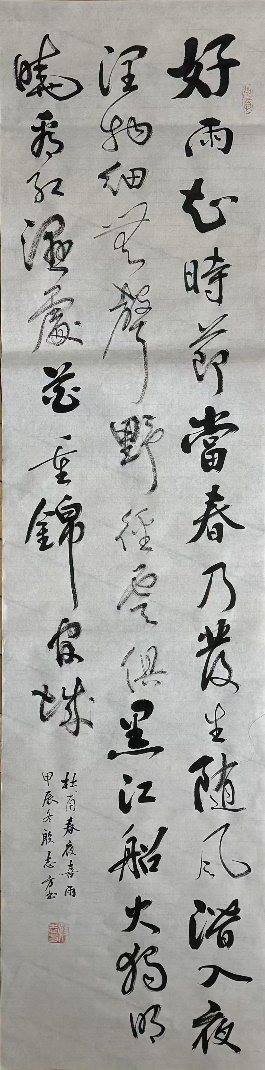 好雨知時節當春乃發生随風潛入夜
潤物細無聲野徑雲俱黑江船火獨明
曉看紅濕處花重錦官城
杜甫春夜喜雨
甲辰冬殷志方书